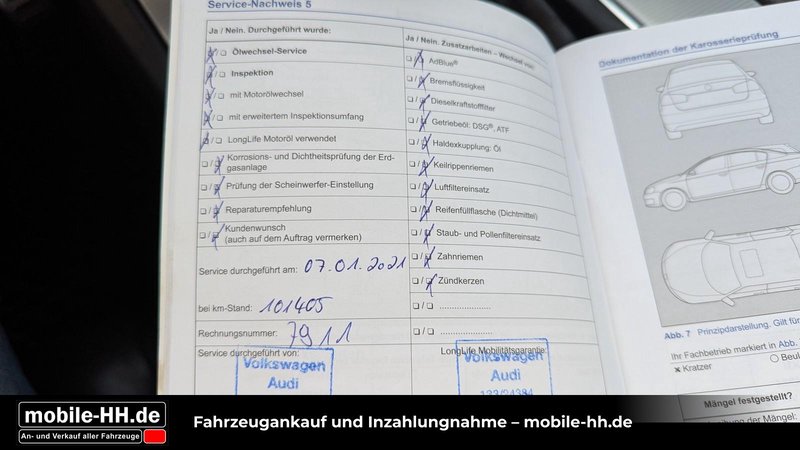 Service-Nachweis 5
Ja / Nein. Durchgeführt wurde:
Ölwechsel-Service
Inspektion
mit Motorölwechsel
mit erweitertem Inspektionsumfang
LongLife Motoröl verwendet
Korrosions- und Dichtheitsprüfung der Erd-
gasanlage
Prüfung der Scheinwerfer-Einstellung
Reparaturempfehlung
Kundenwunsch
(auch auf dem Auftrag vermerken)
Service durchgeführt am: 07.01.2021
bei km-Stand: 101405
Rechnungsnummer: 7911
Service durchgeführt von:
Volkswagen
Audi
Ja / Nein. Zusatzarbeiten – Wechsel von:
AdBlue®
Bremsflüssigkeit
Dieselkraftstofffilter
Getriebeöl: DSG®, ATF
Haldexkupplung: Öl
Keilrippenriemen
Luftfiltereinsatz
Reifenfüllflasche (Dichtmittel)
Staub- und Pollenfiltereinsatz
Zahnriemen
Zündkerzen
LongLife Mobilitätsgarantie:
Volkswagen
Audi
Dokumentation der Karosserieprüfung
Abb. 7 Prinzipdarstellung. Gilt für
Ihr Fachbetrieb markiert in Abb.
× Kratzer
Mängel festgestellt?
der Mängel:
mobile-HH.de
An- und Verkauf aller Fahrzeuge
Fahrzeugankauf und Inzahlungnahme – mobile-hh.de